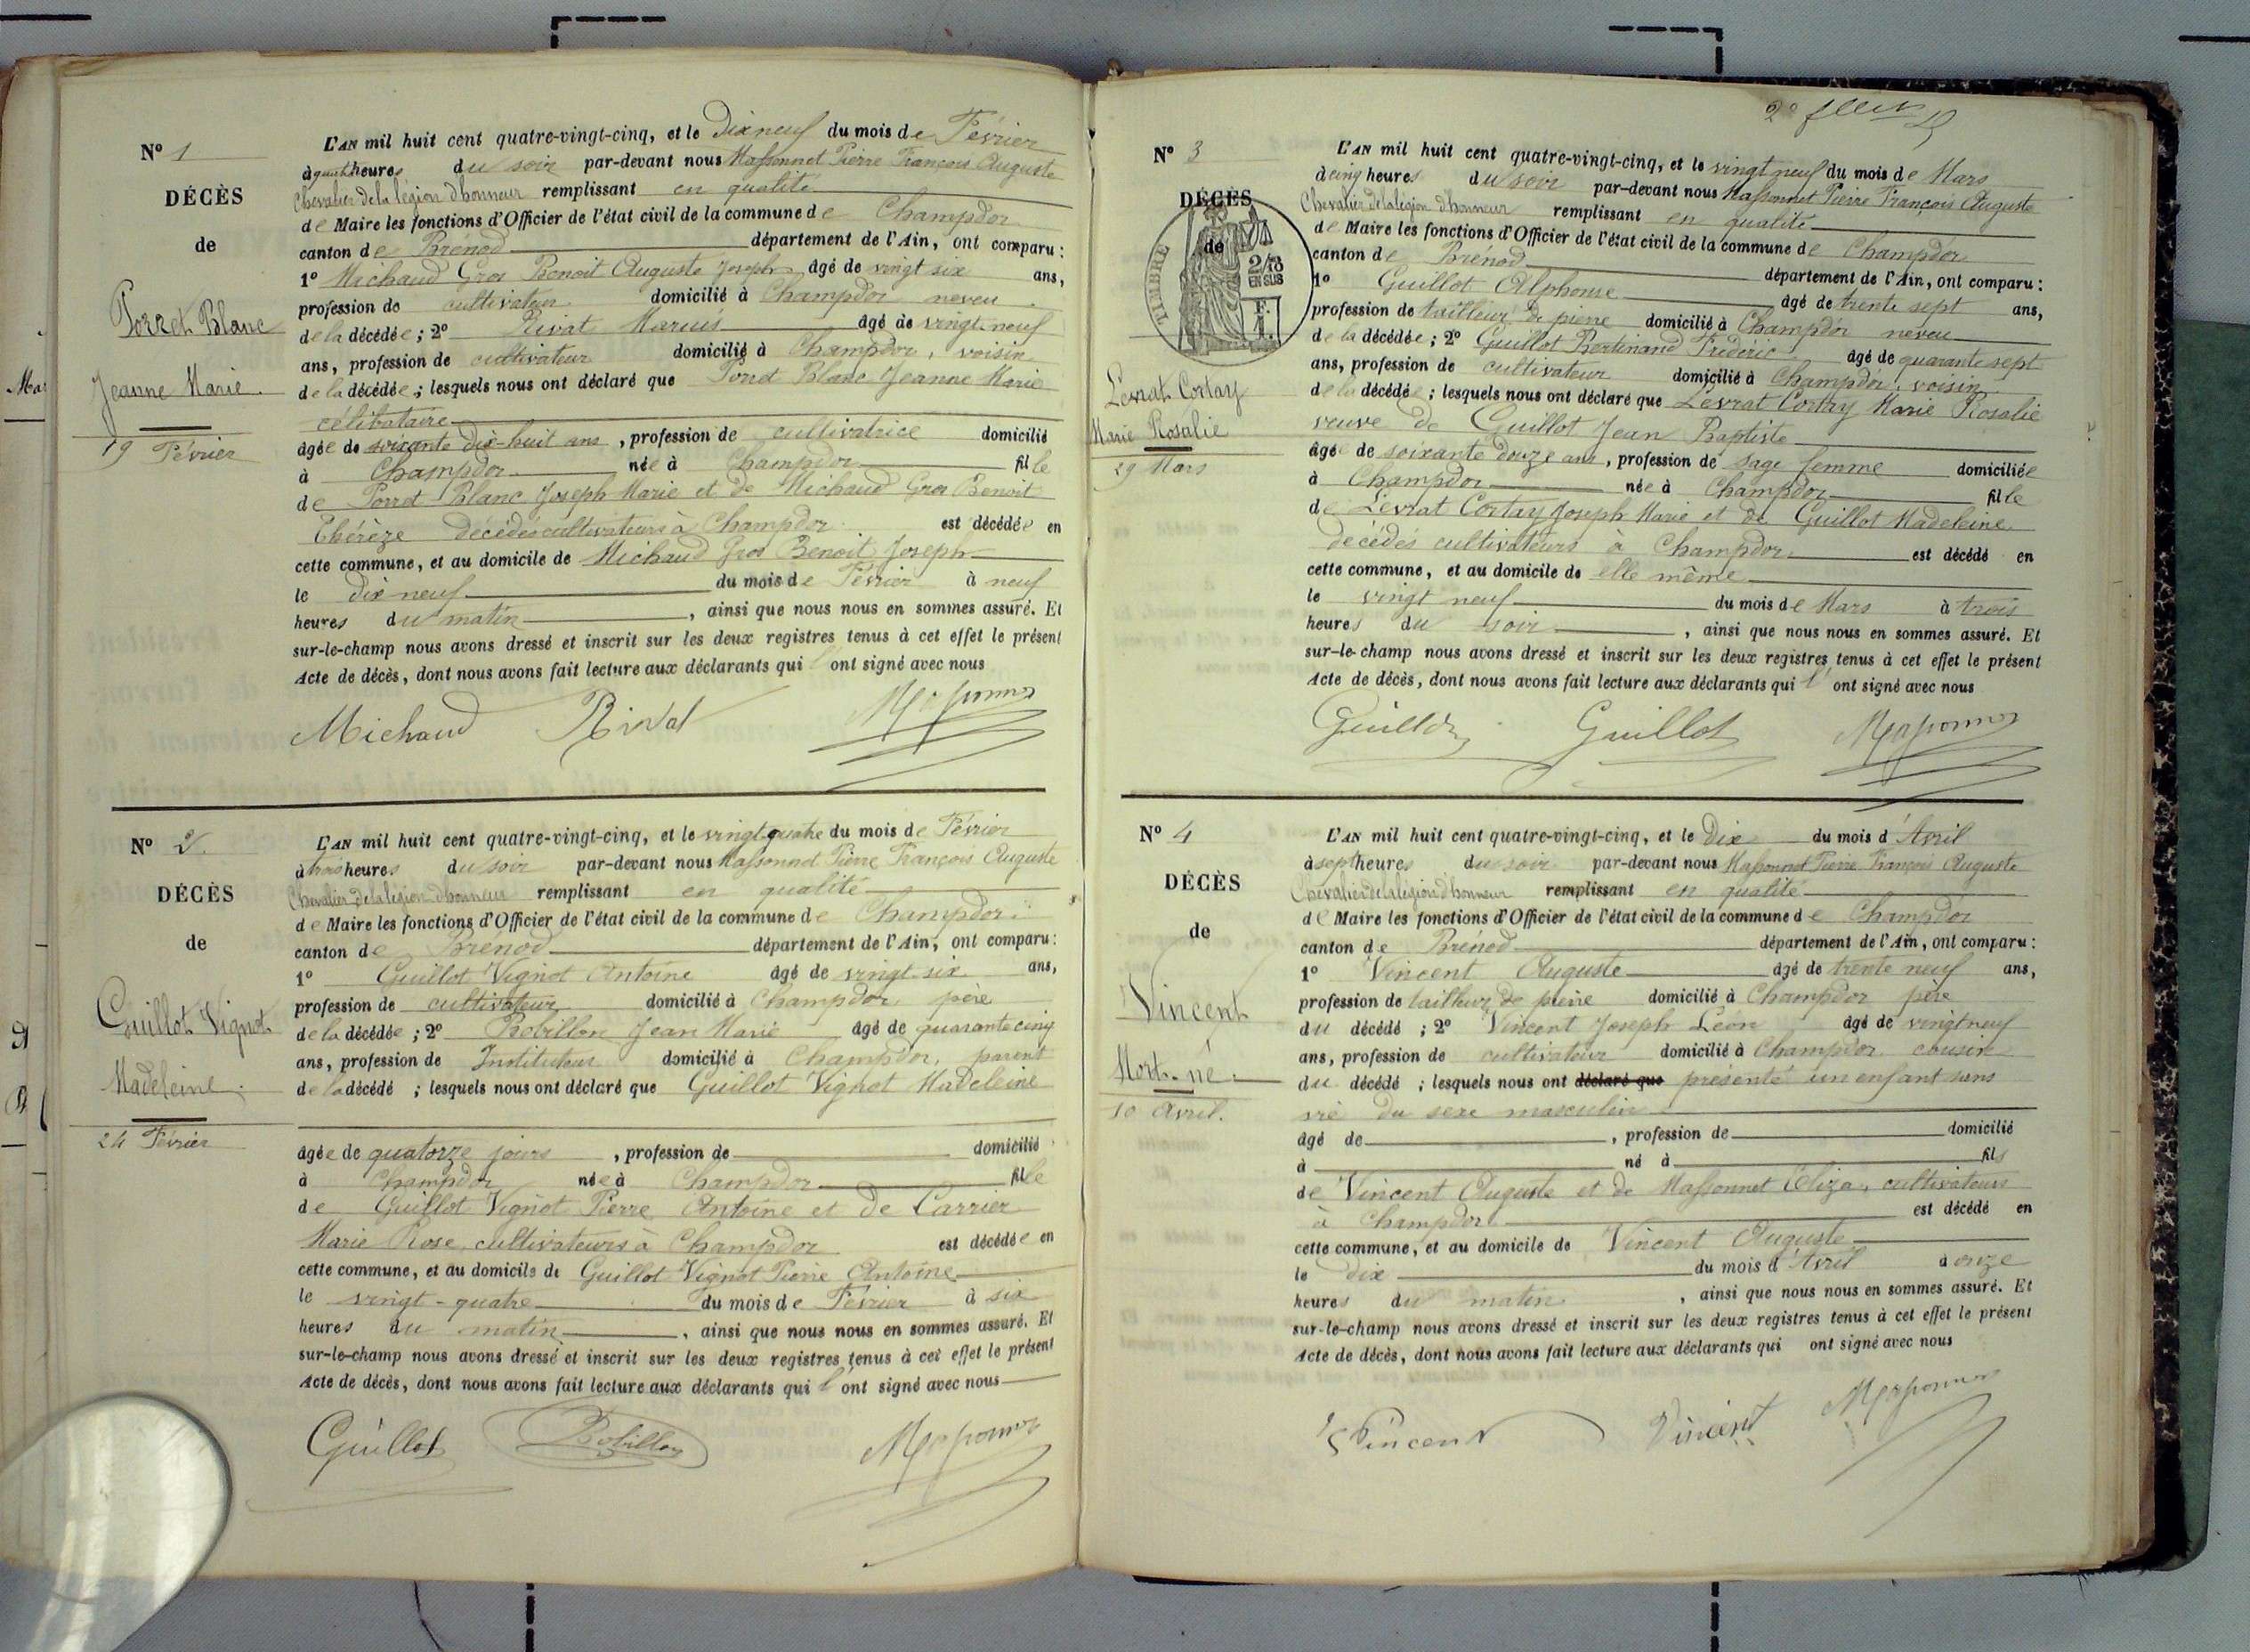 N° 1
DÉCÈS
de
Porret Blanc
Jeanne Marie
19 Février
L'AN mil huit cent quatre-vingt-cinq, et le Dix neuf du mois de Février
à heures du soir par-devant nous Massonnet Pierre François Auguste
Chevalier de la légion d'honneur remplissant en qualité
de Maire les fonctions d'Officier de l'état civil de la commune de Champdor
canton de Brénod département de l'Ain, ont comparu :
1° Michaud Gros Benoit Auguste Joseph âgé de vingt six ans,
profession de cultivateur domicilié à Champdor neveu
de la décédée ; 2° Rivat Marius âgé de vingt neuf
ans, profession de cultivateur domicilié à Champdor, voisin
de la décédée ; lesquels nous ont déclaré que Porret Blanc Jeanne Marie
célibataire
âgée de soixante dix-huit ans, profession de cultivatrice domicilié
à Champdor née à Champdor fille
de Porret Blanc Joseph Marie et de Michaud Gros Benoit
Thérèze décédés cultivateurs à Champdor est décédée en
cette commune, et au domicile de Michaud Gros Benoit Joseph
le dix neuf du mois de Février à neuf
heures du matin, ainsi que nous nous en sommes assuré. Et
sur-le-champ nous avons dressé et inscrit sur les deux registres tenus à cet effet le présent
Acte de décès, dont nous avons fait lecture aux déclarants qui l'ont signé avec nous
Michaud Rivat Massonnet
N° 2
DÉCÈS
de
Guillot Vignot
Madeleine
24 Février
L'AN mil huit cent quatre-vingt-cinq, et le vingt quatre du mois de Février
à trois heures du soir par-devant nous Massonnet Pierre François Auguste
Chevalier de la légion d'honneur remplissant en qualité
de Maire les fonctions d'Officier de l'état civil de la commune de Champdor
canton de Brénod département de l'Ain, ont comparu :
1° Guillot Vignot Antoine âgé de vingt six ans,
profession de cultivateur domicilié à Champdor père
de la décédée ; 2° Robillon Jean Marie âgé de quarante cinq
ans, profession de Instituteur domicilié à Champdor, parent
de la décédé ; lesquels nous ont déclaré que Guillot Vignot Madeleine
âgée de quatorze jours, profession de domicilié
à Champdor née à Champdor fille
de Guillot Vignot Pierre Antoine et de Carrier
Marie Rose, cultivateurs à Champdor est décédée en
cette commune, et au domicile de Guillot Vignot Pierre Antoine
le vingt-quatre du mois de Février à six
heures du matin, ainsi que nous nous en sommes assuré. Et
sur-le-champ nous avons dressé et inscrit sur les deux registres tenus à cet effet le présent
Acte de décès, dont nous avons fait lecture aux déclarants qui l'ont signé avec nous
Guillot Robillon Massonnet
N° 3
DÉCÈS
de
TIMBRE
2/10
EN SUS
Levrat Cortay
Marie Rosalie
29 Mars
L'AN mil huit cent quatre-vingt-cinq, et le vingt neuf du mois de Mars
à cinq heures du soir par-devant nous Massonnet Pierre François Auguste
Chevalier de la légion d'honneur remplissant en qualité
de Maire les fonctions d'Officier de l'état civil de la commune de Champdor
canton de Brénod département de l'Ain, ont comparu :
1° Guillot Alphonse âgé de trente sept ans,
profession de tailleur de pierre domicilié à Champdor neveu
de la décédée ; 2° Guillot Bertinand Frédéric âgé de quarante sept
ans, profession de cultivateur domicilié à Champdor, voisin
de la décédée ; lesquels nous ont déclaré que Levrat Cortay Marie Rosalie
veuve de Guillot Jean Baptiste
âgée de soixante douze ans, profession de sage femme domiciliée
à Champdor née à Champdor fille
de Levrat Cortay Joseph Marie et de Guillot Madeleine
décédés cultivateurs à Champdor est décédé en
cette commune, et au domicile de elle même
le vingt neuf du mois de Mars à trois
heures du soir, ainsi que nous nous en sommes assuré. Et
sur-le-champ nous avons dressé et inscrit sur les deux registres tenus à cet effet le présent
Acte de décès, dont nous avons fait lecture aux déclarants qui l'ont signé avec nous
Guillot Guillot Massonnet
N° 4
DÉCÈS
de
Vincent
Mort-né
10 Avril.
L'AN mil huit cent quatre-vingt-cinq, et le Dix du mois d'Avril
à sept heures du soir par-devant nous Massonnet Pierre François Auguste
Chevalier de la légion d'honneur remplissant en qualité
de Maire les fonctions d'Officier de l'état civil de la commune de Champdor
canton de Brénod département de l'Ain, ont comparu :
1° Vincent Auguste âgé de trente neuf ans,
profession de tailleur de pierre domicilié à Champdor père
du décédé ; 2° Vincent Joseph Léon âgé de vingt neuf
ans, profession de cultivateur domicilié à Champdor cousin
du décédé ; lesquels nous ont déclaré que présenté un enfant sans
vie du sexe masculin
âgé de, profession de domicilié
à né à fils
de Vincent Auguste et de Massonnet Eliza, cultivateurs
à Champdor est décédé en
cette commune, et au domicile de Vincent Auguste
le dix du mois d'Avril à onze
heures du matin, ainsi que nous nous en sommes assuré. Et
sur-le-champ nous avons dressé et inscrit sur les deux registres tenus à cet effet le présent
Acte de décès, dont nous avons fait lecture aux déclarants qui ont signé avec nous
Vincent Vincent Massonnet